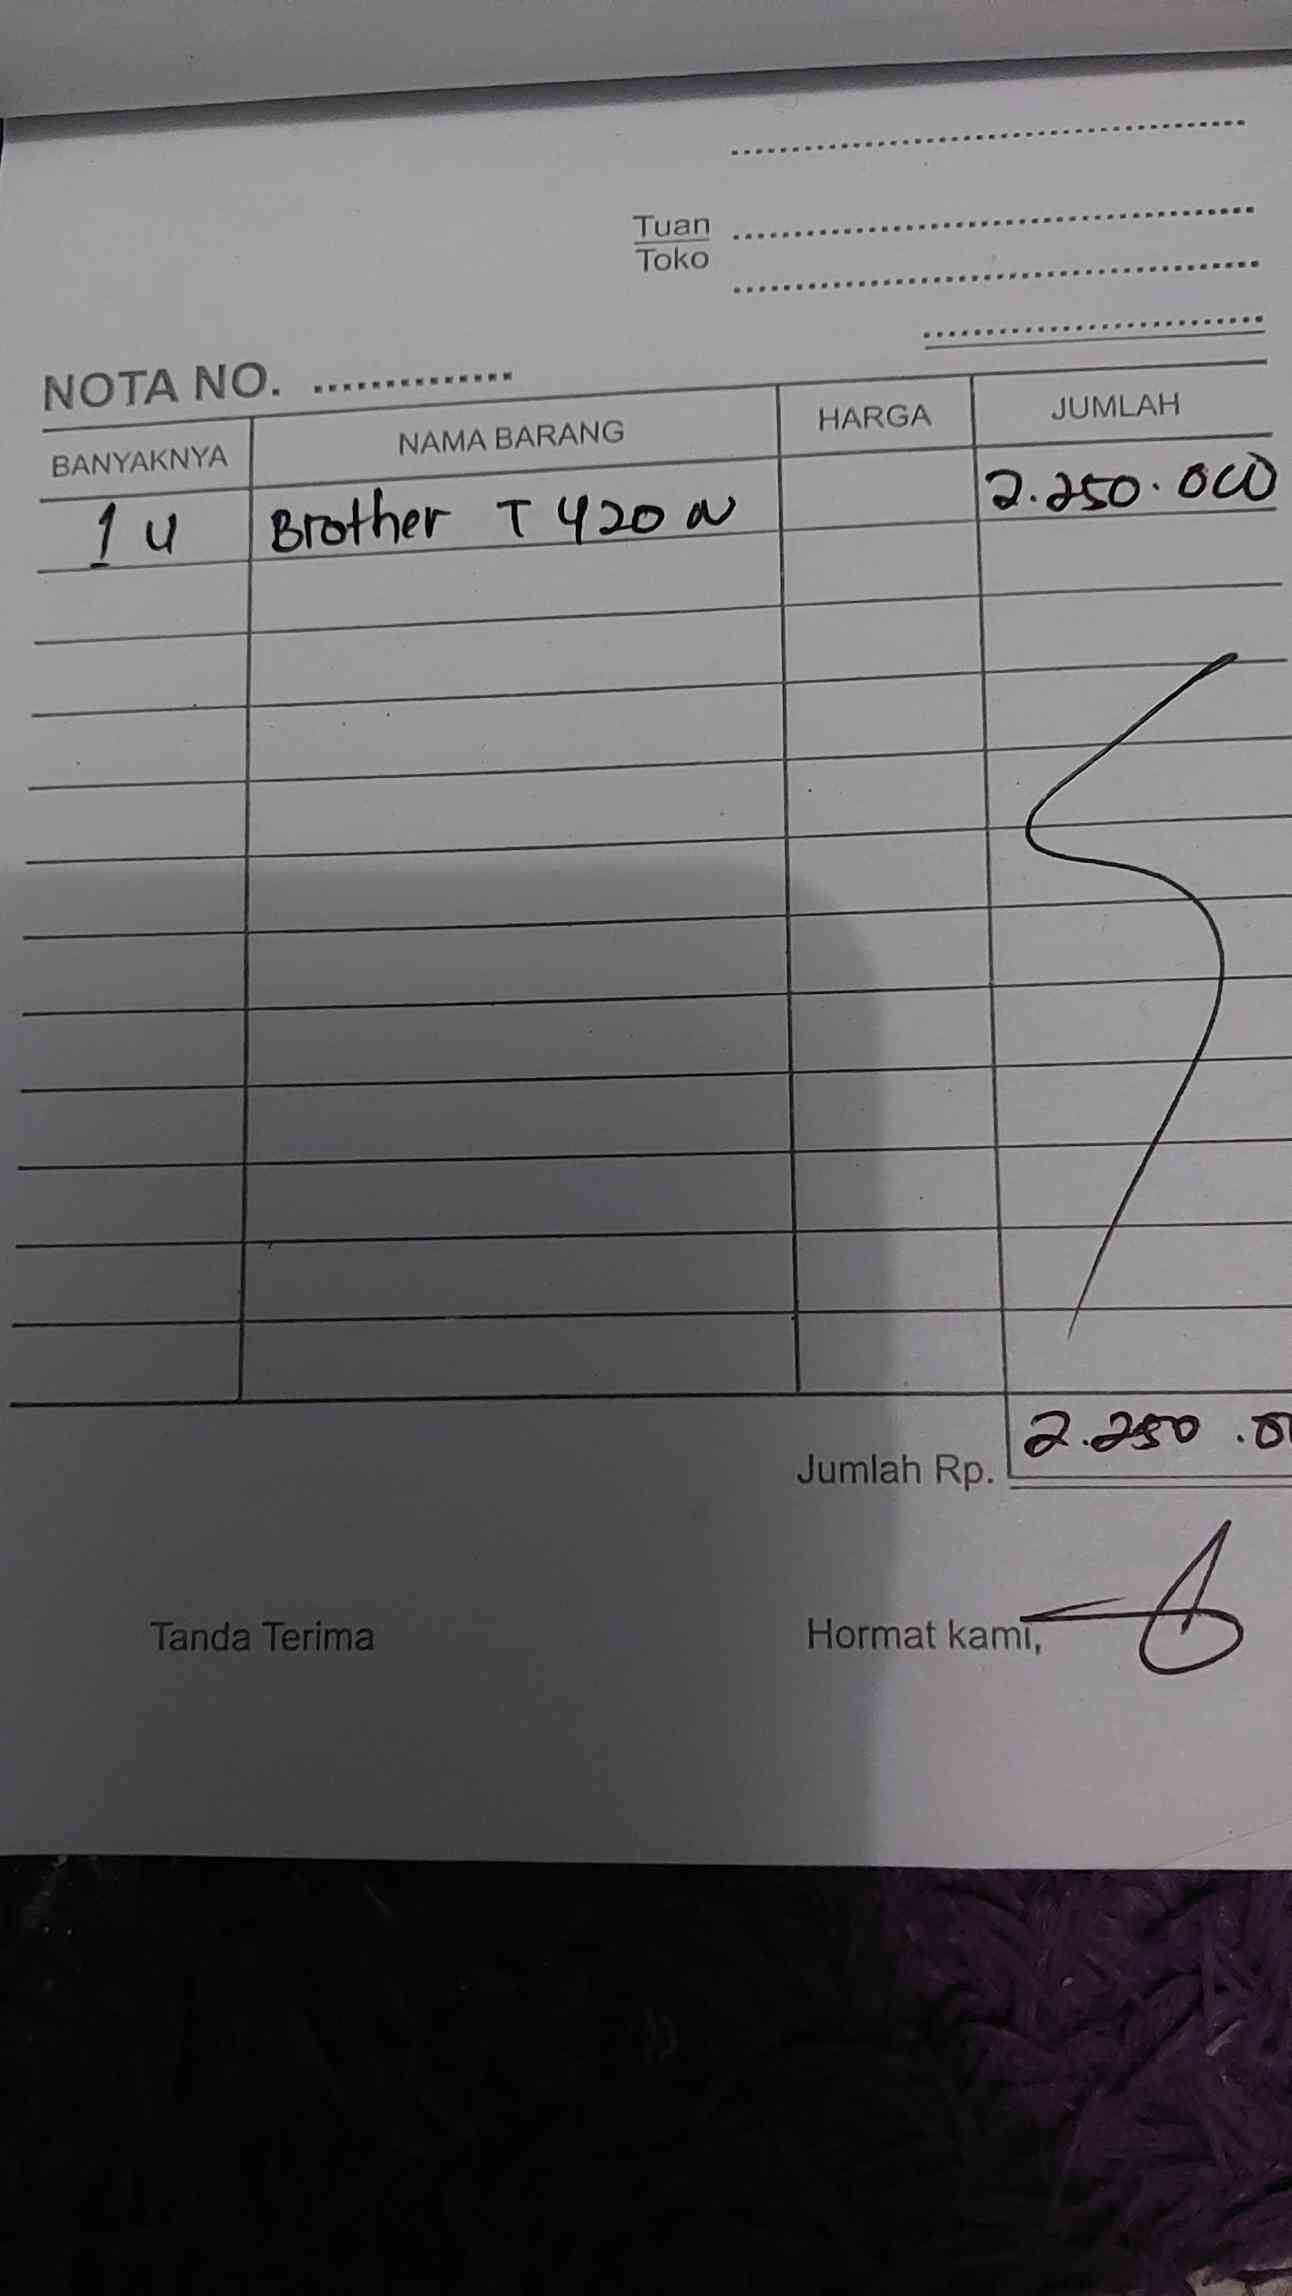 Tuan
Toko
NOTA NO.
BANYAKNYA NAMA BARANG HARGA JUMLAH
1 u Brother T 420 W 2.250.000
Jumlah Rp. 2.250.0
Tanda Terima Hormat kami,